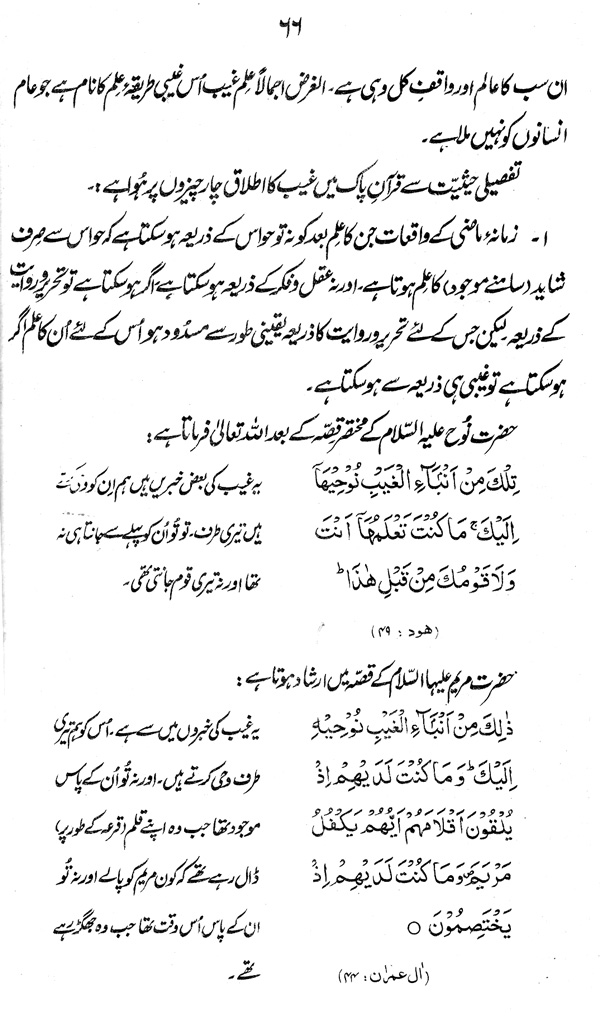 ۶۶
ان سب کا عالم اور واقفِ کل وہی ہے۔ الغرض اجمالاً علم غیب اُس غیبی طریقۂ علم کا نام ہے جو عام
انسانوں کو نہیں ملا ہے۔
تفصیلی حیثیت سے قرآنِ پاک میں غیب کا اطلاق چار چیزوں پر ہُوا ہے:۔
۱۔ زمانۂ ماضی کے واقعات جن کا علم بعد کو نہ تو حواس کے ذریعہ ہو سکتا ہے کہ حواس سے صرف
شاہد (سامنے موجود) کا علم ہوتا ہے۔ اور نہ عقل و فکر کے ذریعہ ہو سکتا ہے اگر ہو سکتا ہے تو تحریر و روایت
کے ذریعہ لیکن جس کے لئے تحریر و روایت کا ذریعہ یقینی طور سے مسدُود ہو اُس کے لئے اُن کا علم اگر
ہو سکتا ہے تو غیبی ہی ذریعہ سے ہو سکتا ہے۔
حضرت نُوح علیہ السّلام کے مختصر قصّہ کے بعد اللہ تعالیٰ فرماتا ہے:
تِلْكَ مِنْ اَنْۢبَآءِ الْغَيْبِ نُوْحِيْهَآ یہ غیب کی بعض خبریں ہیں ہم ان کو
اِلَيْكَ ۚ مَا كُنْتَ تَعْلَمُهَآ اَنْتَ ہیں تیری طرف۔ تو تُو اُن کو پہلے سے جانتا ہی نہ
وَلَا قَوْمُكَ مِنْ قَبْلِ هٰذَا ؕ تھا اور نہ تیری قوم جانتی تھی۔
(ھود : ۴۹)
حضرت مریم علیہا السّلام کے قصّہ میں ارشاد ہوتا ہے:
ذٰلِكَ مِنْ اَنْۢبَآءِ الْغَيْبِ نُوْحِيْهِ یہ غیب کی خبروں میں سے ہے۔ اُس کو ہم تیری
اِلَيْكَ ؕ وَمَا كُنْتَ لَدَيْهِمْ اِذْ طرف وحی کرتے ہیں۔ اور نہ تُو اُن کے پاس
يُلْقُوْنَ اَقْلَامَهُمْ اَيُّهُمْ يَكْفُلُ موجود تھا جب وہ اپنے قلم (قرعہ کے طور پر)
مَرْيَمَ ۪ وَمَا كُنْتَ لَدَيْهِمْ اِذْ ڈال رہے تھے کہ کون مریم کو پالے اور نہ تُو
يَخْتَصِمُوْنَ ○ ان کے پاس اُس وقت تھا جب وہ جھگڑ رہے
(اٰل عمران: ۴۴) تھے۔